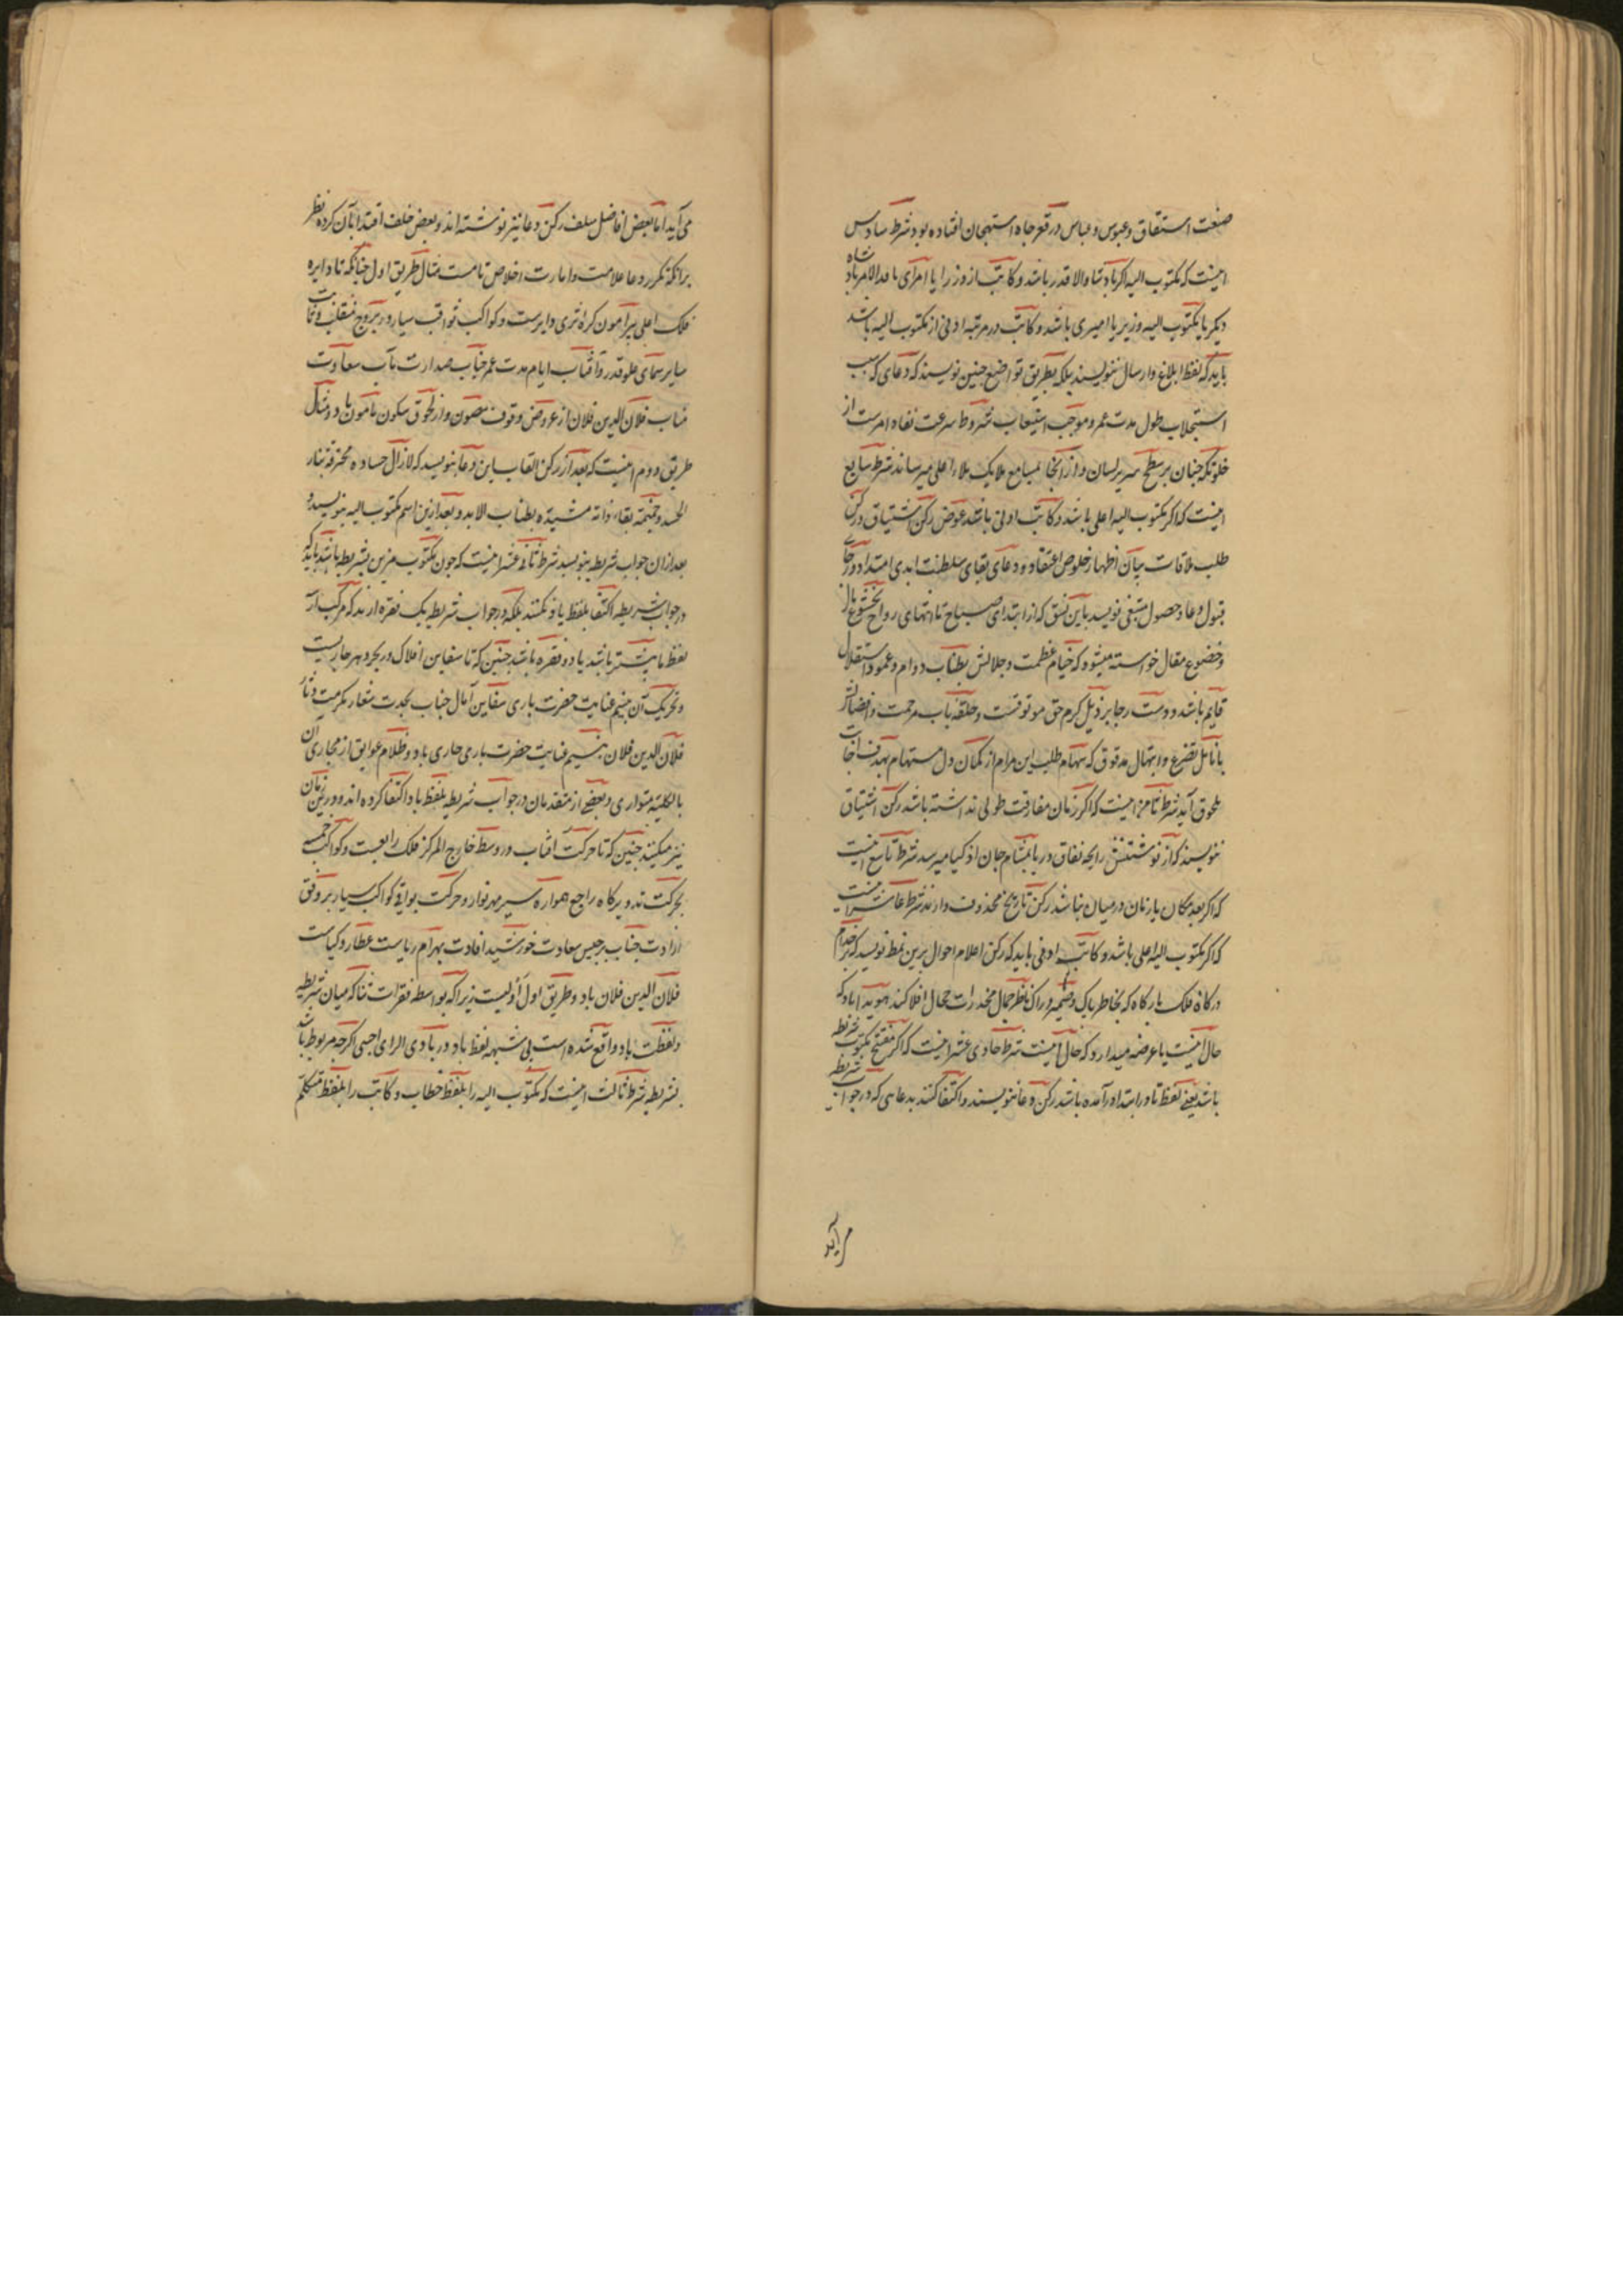 صنعت استقاق و عبوس و عباس در قعر جاه استهجان افتاده بود شرط سادس
اینست که مکتوب الیه اکر بادشاه والاقدر باشد و کاتب از وزرا یا امرای نافدالامر بادشاه
دیکر یا مکتوب الیه وزیر یا امیری باشد و کاتب در مرتبه ادنی از مکتوب الیه باشد
باید که لفظ ابلاغ و ارسال ننویسند بلکه بطریق تواضع جنین نویسند که دعای که سبب
استجلاب طول مدت عمر و موجب استیعاب شروط سرعت نفاد امرست از
خلوتکه جنان بر سطح سریر لسان و از آنجا بمسامع ملایک ملاء اعلی میرساند شرط سابع
اینست که اکر مکتوب الیه اعلی باشد و کاتب ادنی باشد عوض رکن اشتیاق و رکن
طلب ملاقات بیان اظهار خلوص اعتقاد و دعای بقای سلطنت ابدی امتداد و رجای
قبول دعا و حصول مبتغی نویسد باین نسق که از ابتدای صباح تا انتهای رواح بخشوع بال
و خضوع مقال خواسته میشود که خیام عظمت و جلالش بطناب دوام و عمود استقلال
قایم باشد و دست رجا بر ذیل کرم حق موثوقست و حلقه باب مرحمت و افضالش
بانامل تضرع و ابتهال مدقوق که سهام طلب این مرام از کمان دل مستهام بهدف اجابت
ملحوق آید شرط ثامن اینست که اکر زمان مفارقت طولی نداشته باشد رکن اشتیاق
ننویسند که از نوشتنش رایحه نفاق و ریا بمشام جان اذکیا میرسد شرط تاسع اینست
که اکر بعد مکان یا زمان در میان نباشد رکن تاریخ محذوف دارند شرط عاشر اینست
که اکر مکتوب الیه اعلی باشد و کاتب ادنی باید که رکن اعلام احوال برین نمط نویسد که بر خدام
درکاه فلک بارکاه که بخاطر باک و ضمیر دراک ناظر جمال مخدرات حجال افلاکند هویدا باد که
حال اینست یا عرضه میدارد که حال اینست شرط حادی عشر اینست که اکر مفتتح مکتوب شریطه
باشد یعنی لفظ تا در ابتدا درآمده باشد رکن دعا ننویسند و اکتفا کنند بدعایی که در جواب شریطه
می آید
می آید اما بعض افاضل سلف رکن دعا نیز نوشته اند و بعض خلف اقتدا بآن کرده نظر
برانکه تکرر دعا علامت و امارت اخلاص تامست مثال طریق اول جنانکه تا دایره
فلک اعلی برامون کره اثری دایرست و کواکب ثواقب سیار در بروج منقلب و ثابت
سایر سمای علو قدر و آفتاب ایام مدت عمر جناب صدارت مآب سعادت
مناب فلان الدین فلان از عروض وقوف مصون و از لحوق سکون مامون باد و مثال
طریق دوم اینست که بعد از رکن القاب باین دعا بنویسد که لازال حساده محترقة بنار
الحسد و خیمة بقاء ذاته مشیدة بطناب الابد و بعد ازین اسم مکتوب الیه بنویسد و
بعد ازان جواب شریطه بنویسد شرط ثانی عشر اینست که جون مکتوب مزین بشریطه باشد باید که
در جواب شریطه اکتفا بلفظ باد نکنند بلکه در جواب شریطه یک فقره ارند که مرکب از
لفظ یا بیشتر باشد یا دو فقره باشد جنین که تا سفاین افلاک در بحر دهر جاریست
و تحریک آن بنسیم عنایت حضرت باری سفاین آمال جناب نجدت شعار مکرمت دثار
فلان الدین فلان بنسیم عنایت حضرت باری جاری باد و ظلام عوایق از مجاری آن
بالکلیه متواری و بعضی از متقدمان در جواب شریطه بلفظ باد اکتفا کرده اند و درین زمان
نیز میکنند جنین که تا حرکت آفتاب در وسط خارج المرکز فلک رابعست و کواکب خمسه
بحرکت تدویر کاه راجع همواره سیر مهر نوار و حرکت بواقی کواکب سیار بر وفق
ارادت جناب برجیس سعادت خورشید افادت بهرام ریاست عطارد کیاست
فلان الدین فلان باد و طریق اول اولیست زیرا که بواسطه فقرات ثنا که میان شریطه
و لفظ باد واقع شده است بی شبهه لفظ باد در بادی الرای اجبی اکرجه مربوط باشد
بشریطه شرط ثالث اینست که مکتوب الیه را بلفظ خطاب و کاتب را بلفظ متکلم